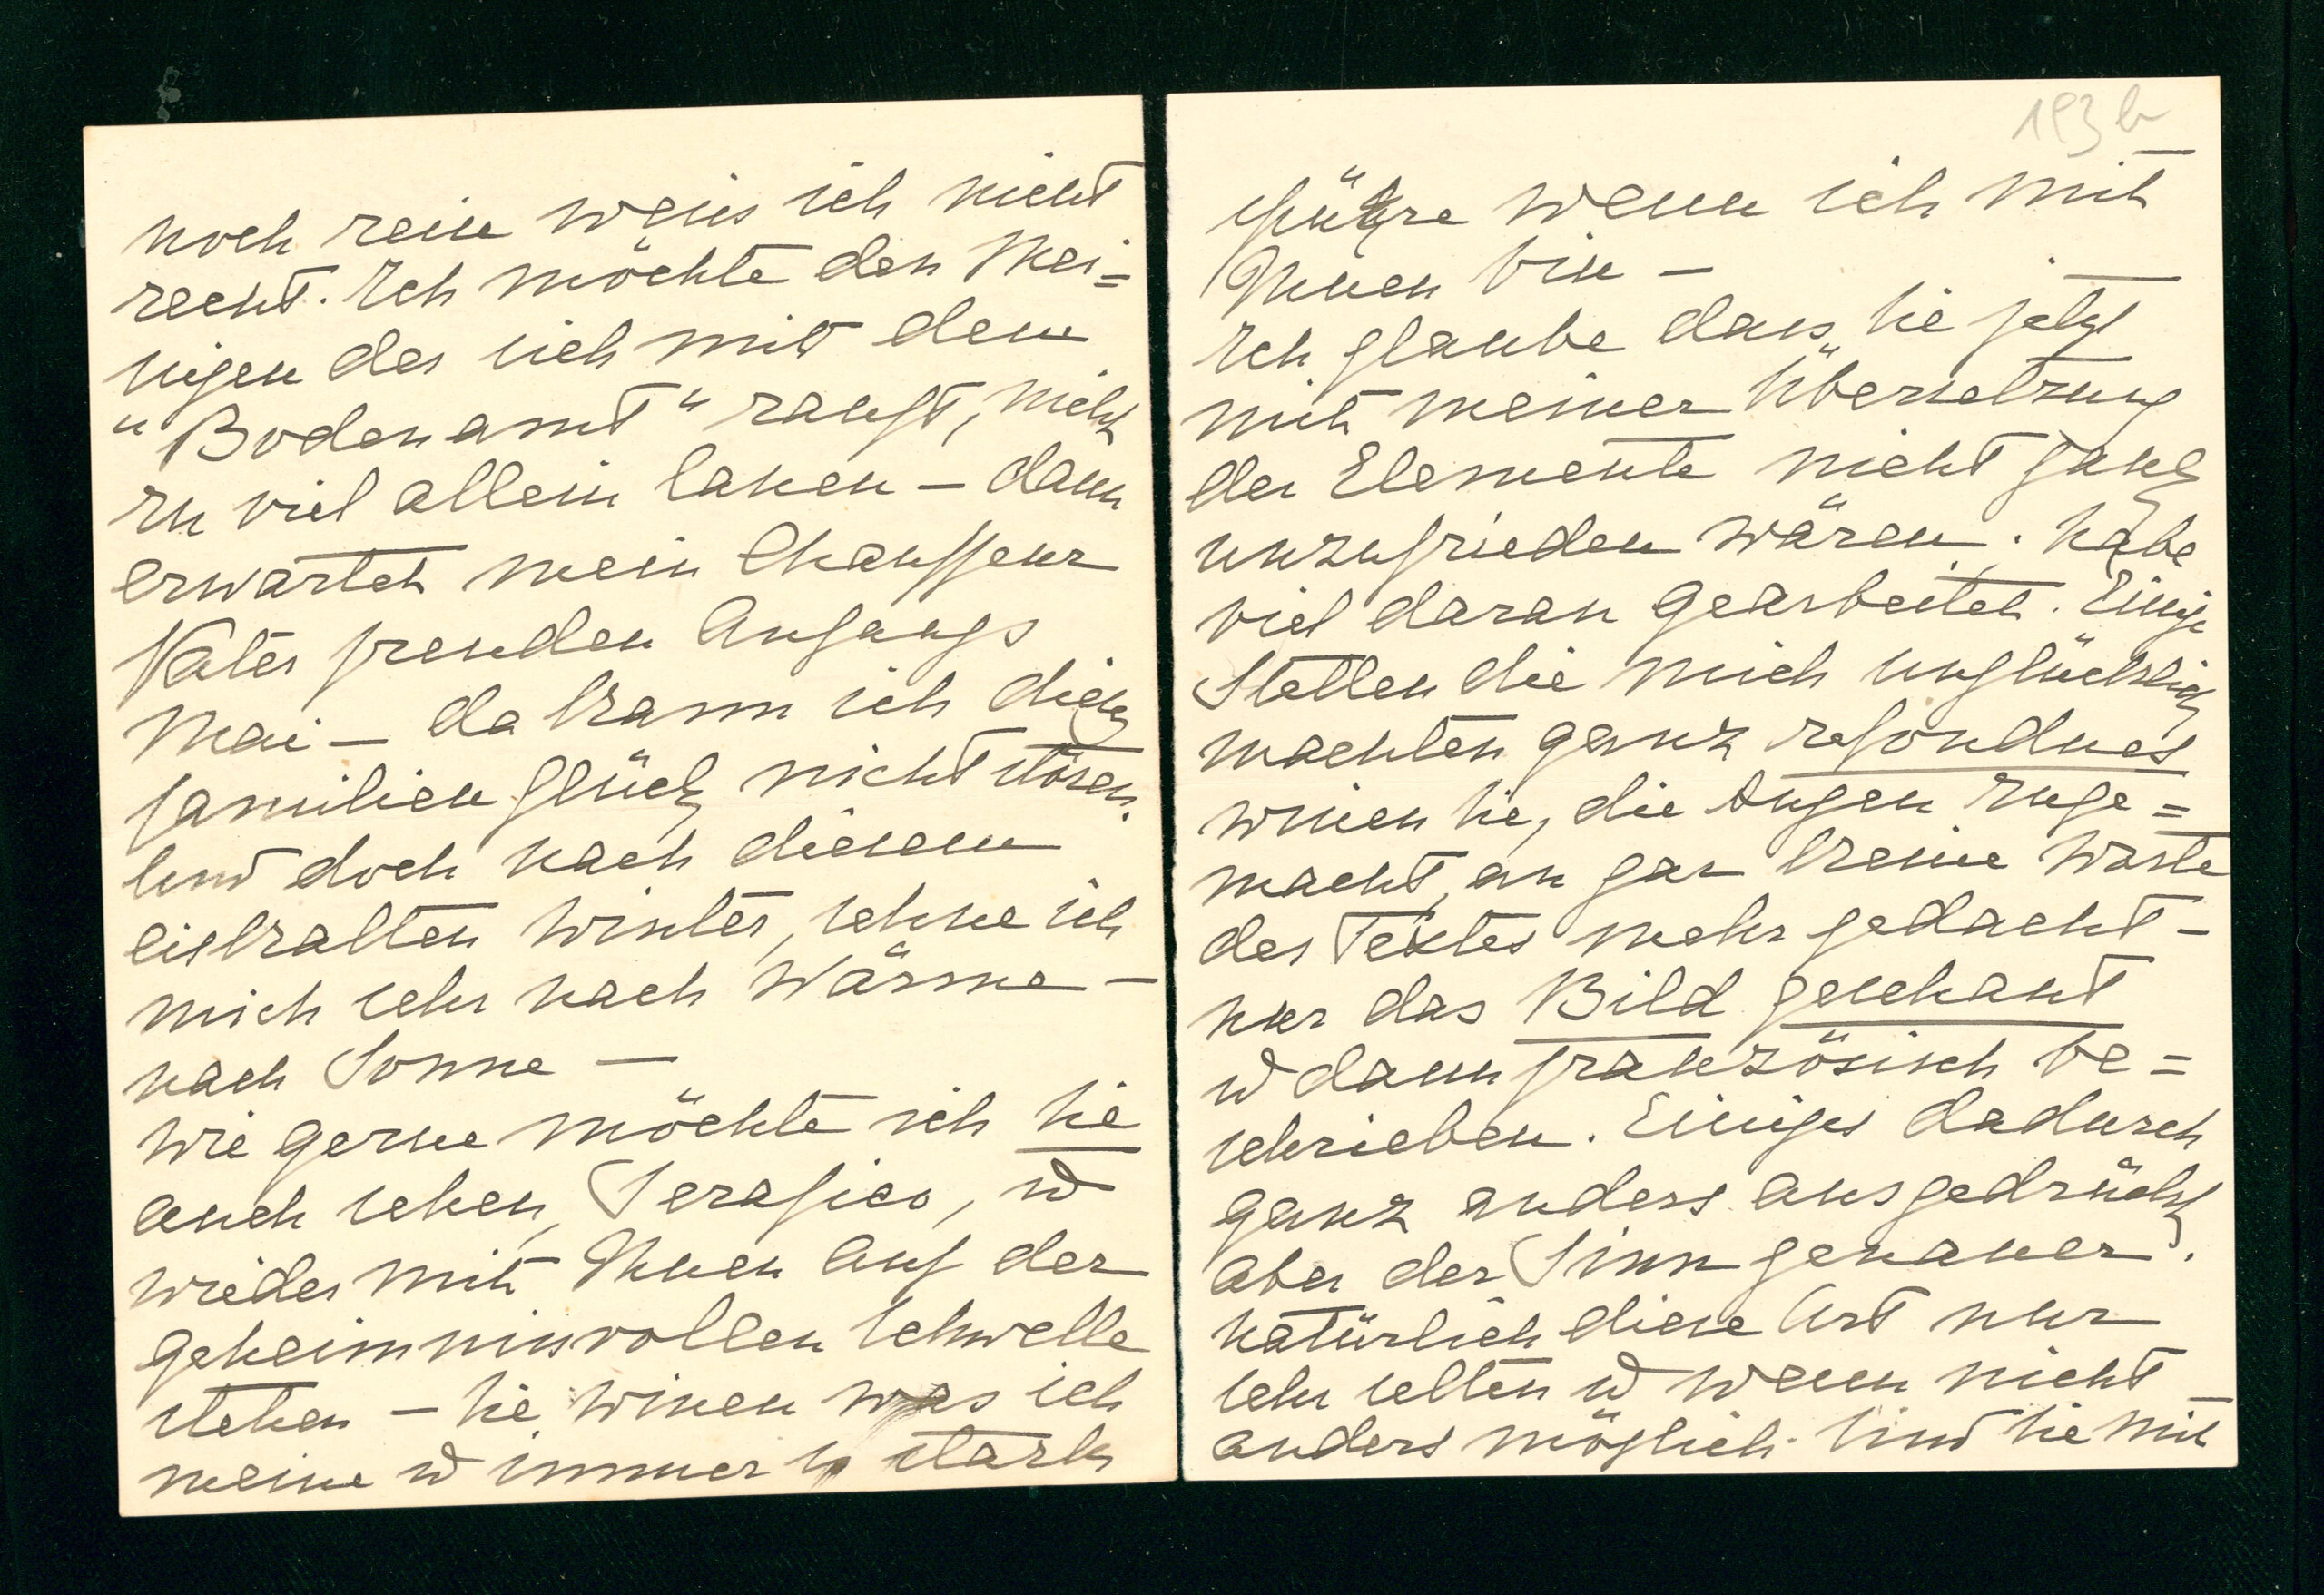 noch rein weiss ich nicht
recht. Ich möchte den Mei=
nigen der sich mit dem
"Bodenamt" rauft, nicht
zu viel allein lassen – dann
erwartet mein Chauffeur
Vaterfreuden Anfangs
Mai – da kann ich dieses
familienglück nicht stören.
Und doch nach diesem
eiskalten Winter, sehne ich
mich sehr nach Wärme –
nach Sonne –
Wie gerne möchte ich Sie
auch sehen, Serafico, u
wieder mit Ihnen auf der
geheimnisvollen Schwelle
stehen – Sie wissen was ich
meine u immer so stark
193 b
spüre wenn ich mit
Ihnen bin –
Ich glaube dass Sie jetzt
mit meiner Übersetzung
der Elemente nicht ganz
unzufrieden wären. habe
viel daran gearbeitet. Einige
Stellen die mich unglücklich
machten ganz refondues
wissen Sie, die Augen zuge=
macht, an gar keine Worte
des Textes mehr gedacht –
nur das Bild geschaut
u dann französisch be=
schrieben. Einiges dadurch
ganz anders ausgedrückt
aber der Sinn genauer.
Natürlich diese Art nur
sehr selten u wenn nicht
anders möglich. Und Sie mit